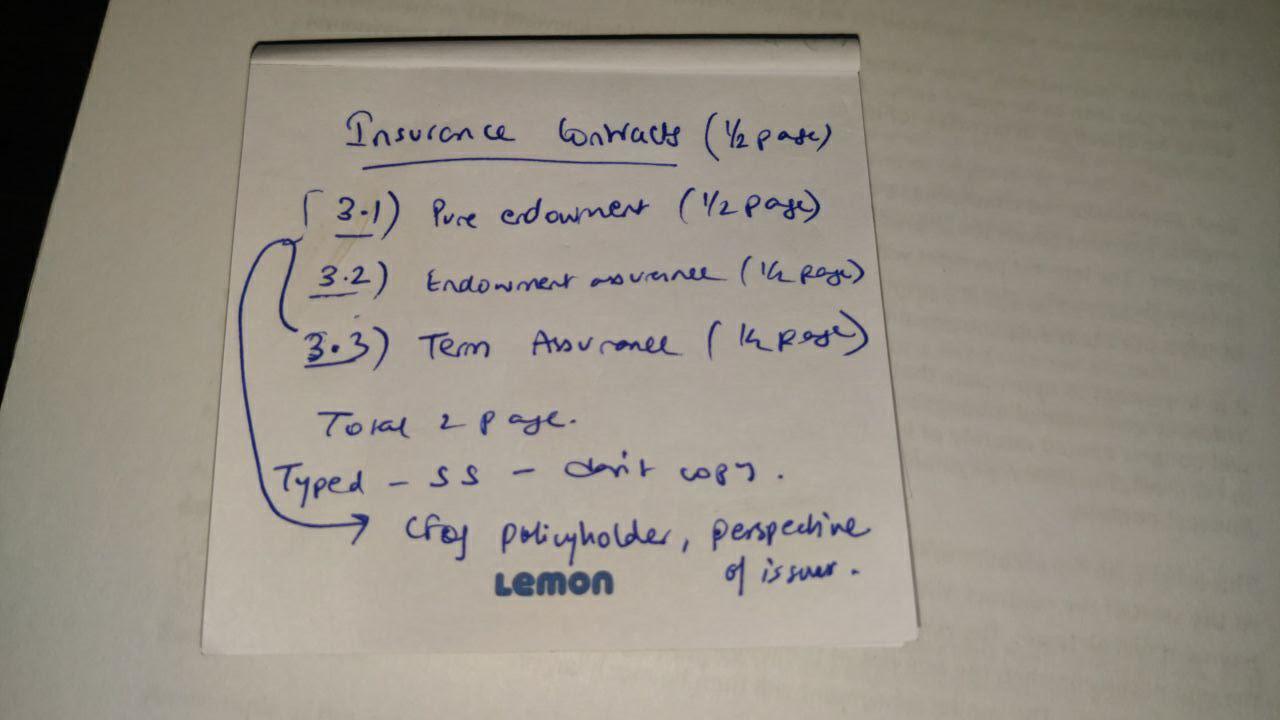 Insurance Contracts (1/2 page)
3.1) Pure endowment (1/2 page)
3.2) Endowment assurance (1/2 page)
3.3) Term Assurance (1/2 page)
Total 2 page.
Typed - SS - don't copy.
CF of policyholder, perspective
of issuer.
Lemon